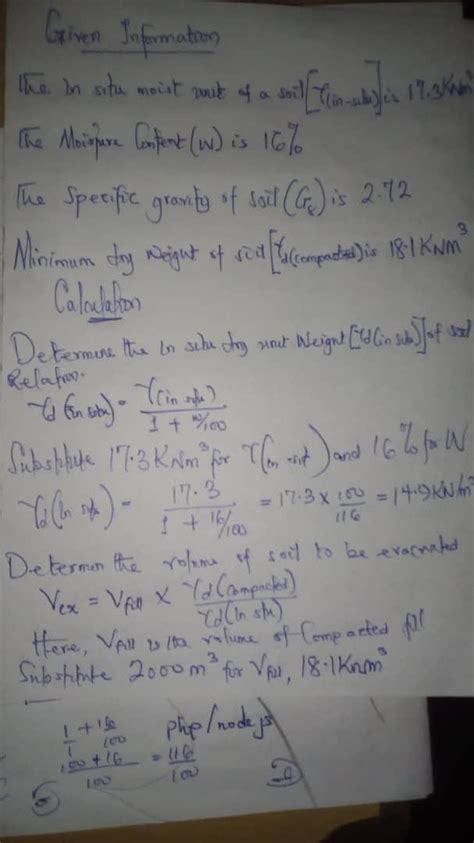 Given Information
The In situ moist unit of a soil [γ(in-situ)] is 17.3 KNm³
The Moisture Content (W) is 16%
The Specific gravity of soil (Gs) is 2.72
Minimum dry weight of soil [γd(compacted) is 18.1 KNm³
Calculation
Determine the In situ dry unit Weight [γd(in situ)] of soil
Relation.
γd (in situ) = γ(in situ) / 1 + w/100
Substitute 17.3 KNm³ for γ(in-sit) and 16% for W
γd (In situ) = 17.3 / 1 + 16/100 = 17.3 x 100/116 = 14.9 KN/m³
Determin the volume of soil to be
Vex = Vfill x γd(compacted) / γd(In situ)
Here, Vfill is the volume of Compacted fill
Substitute 2000 m³ for Vfill, 18.1 Knm³
1/1 + 16/100 php/node js
100 + 16 / 100 = 116/100